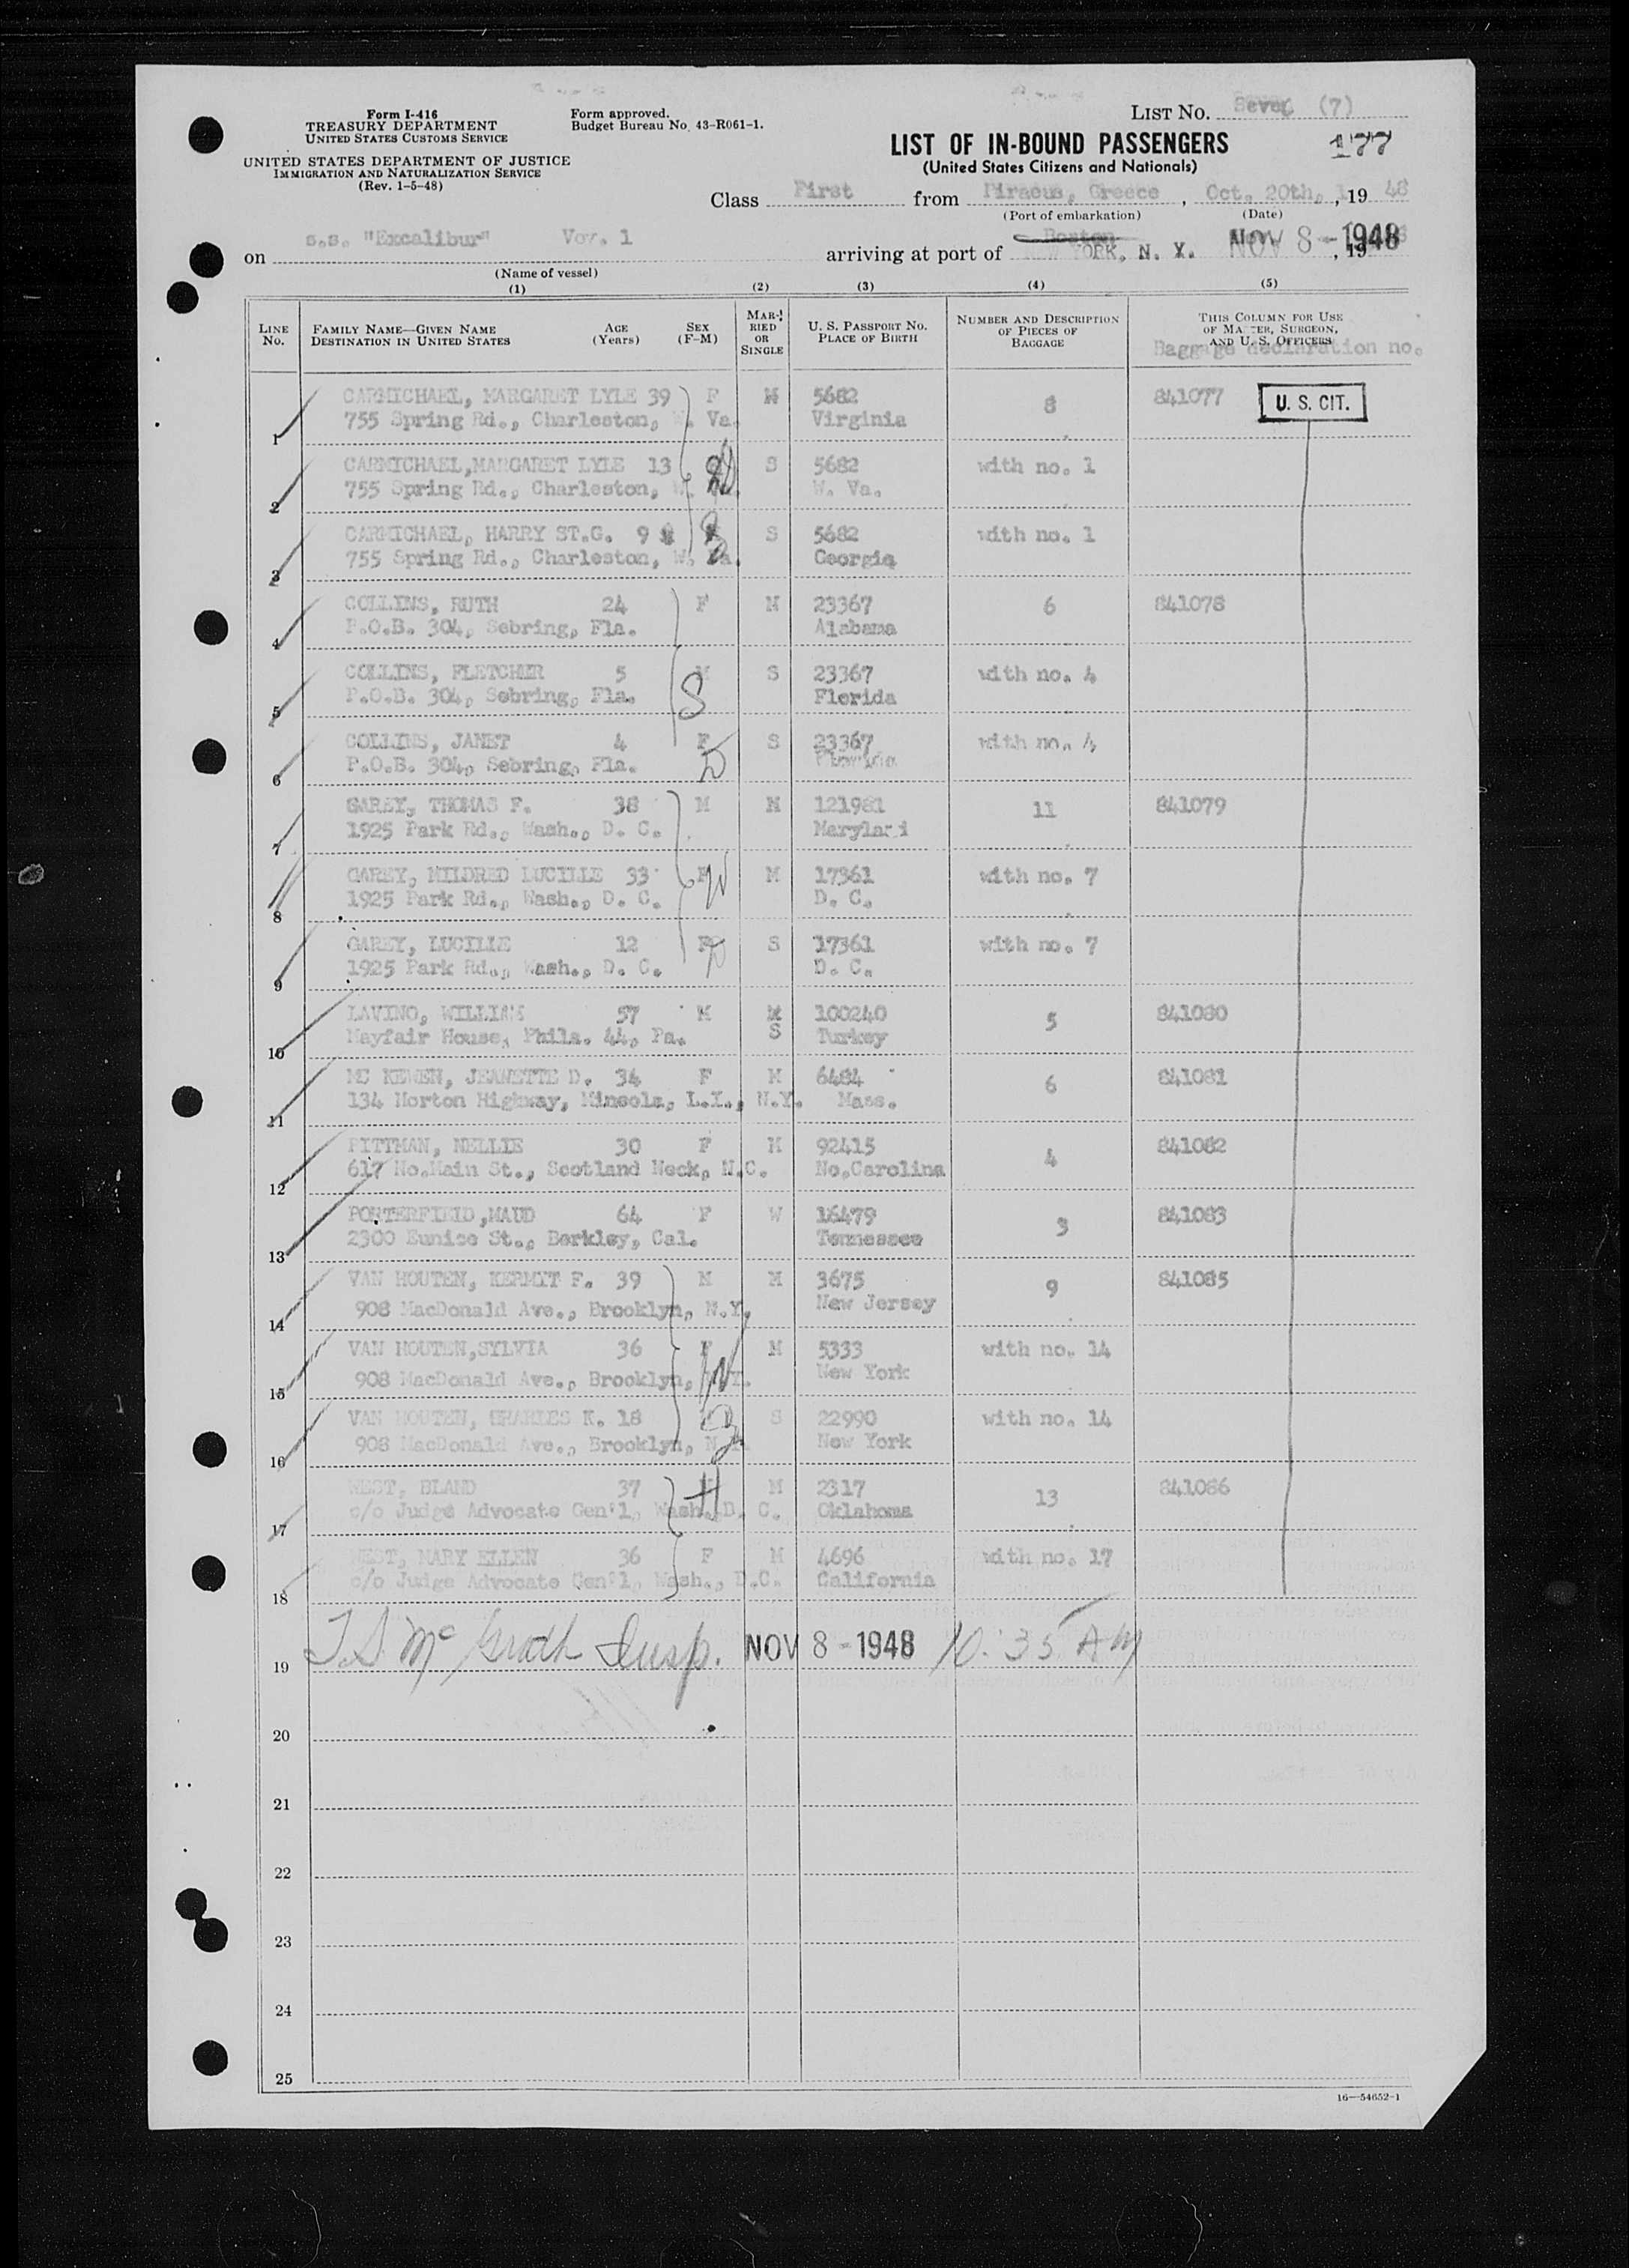 Form I-416
TREASURY DEPARTMENT
UNITED STATES CUSTOMS SERVICE
Form approved.
Budget Bureau No. 43-R061-1.
LIST NO. (7)
UNITED STATES DEPARTMENT OF JUSTICE
IMMIGRATION AND NATURALIZATION SERVICE
(Rev. 1-5-48)
LIST OF IN-BOUND PASSENGERS
177
(United States Citizens and Nationals)
Class First from Piraeus, Greece, Oct. 20th, 1948
(Port of embarkation) (Date)
on s.s. "Excalibur" Voy. 1 arriving at port of Boston NEW YORK, N. Y. NOV 8-1948, 19
(Name of vessel)
(1) (2) (3) (4) (5)
LINE NO. FAMILY NAME—GIVEN NAME DESTINATION IN UNITED STATES AGE (Years) SEX (F-M) MARRIED OR SINGLE U. S. PASSPORT NO. PLACE OF BIRTH NUMBER AND DESCRIPTION OF PIECES OF BAGGAGE THIS COLUMN FOR USE OF MASTER, SURGEON, AND U. S. OFFICERS
Baggage declaration no.
CARMICHAEL, MARGARET LYLE 39 F M 5682 8 841077 U. S. CIT.
1 755 Spring Rd., Charleston, W. Va. Virginia
CARMICHAEL,MARGARET LYLE 13 S 5682 with no. 1
2 755 Spring Rd., Charleston, W. Va. W. Va.
CARMICHAEL, HARRY ST.G. 9 S 5682 with no. 1
3 755 Spring Rd., Charleston, W. Va. Georgia
COLLINS, RUTH 24 F M 23367 6 841078
4 P.O.B. 304, Sebring, Fla. Alabama
COLLINS, FLETCHER 5 M S 23367 with no. 4
5 P.O.B. 304, Sebring, Fla. Florida
COLLINS, JANET 4 F S 23367 with no. 4
6 P.O.B. 304, Sebring, Fla. Florida
GAREY, THOMAS F. 38 M M 121981 11 841079
7 1925 Park Rd., Wash., D. C. Maryland
GAREY, MILDRED LUCILLE 33 F M 17361 with no. 7
8 1925 Park Rd., Wash., D. C. D. C.
GAREY, LUCILLE 12 F S 17361 with no. 7
9 1925 Park Rd., Wash., D. C. D. C.
LAVINO, WILLIAM 57 M M 100240 5 841080
10 Mayfair House, Phila. 44, Pa. S Turkey
MC KEWEN, JEANETTE D. 34 F M 6484 6 841081
11 134 Horton Highway, Mineola, L.I., N.Y. Mass.
PITTMAN, NELLIE 30 F M 92415 4 841082
12 617 No.Main St., Scotland Neck, N.C. No.Carolina
PORTERFIELD,MAUD 64 F W 16479 3 841083
13 2300 Eunice St., Berkley, Cal. Tennessee
VAN HOUTEN, KERMIT F. 39 M M 3675 9 841085
14 908 MacDonald Ave., Brooklyn, N.Y. New Jersey
VAN HOUTEN,SYLVIA 36 F M 5333 with no. 14
15 908 MacDonald Ave., Brooklyn, N.Y. New York
VAN HOUTEN, CHARLES K. 18 S 22990 with no. 14
16 908 MacDonald Ave., Brooklyn, N.Y. New York
WEST, BLAND 37 M 2317 13 841086
17 c/o Judge Advocate Gen'l, Wash., D. C. Oklahoma
WEST, MARY ELLEN 36 F M 4696 with no. 17
18 c/o Judge Advocate Gen'l, Wash., D.C. California
19 T.S. McGrath Insp. NOV 8-1948 10:35 AM
20
21
22
23
24
25
16—54652-1